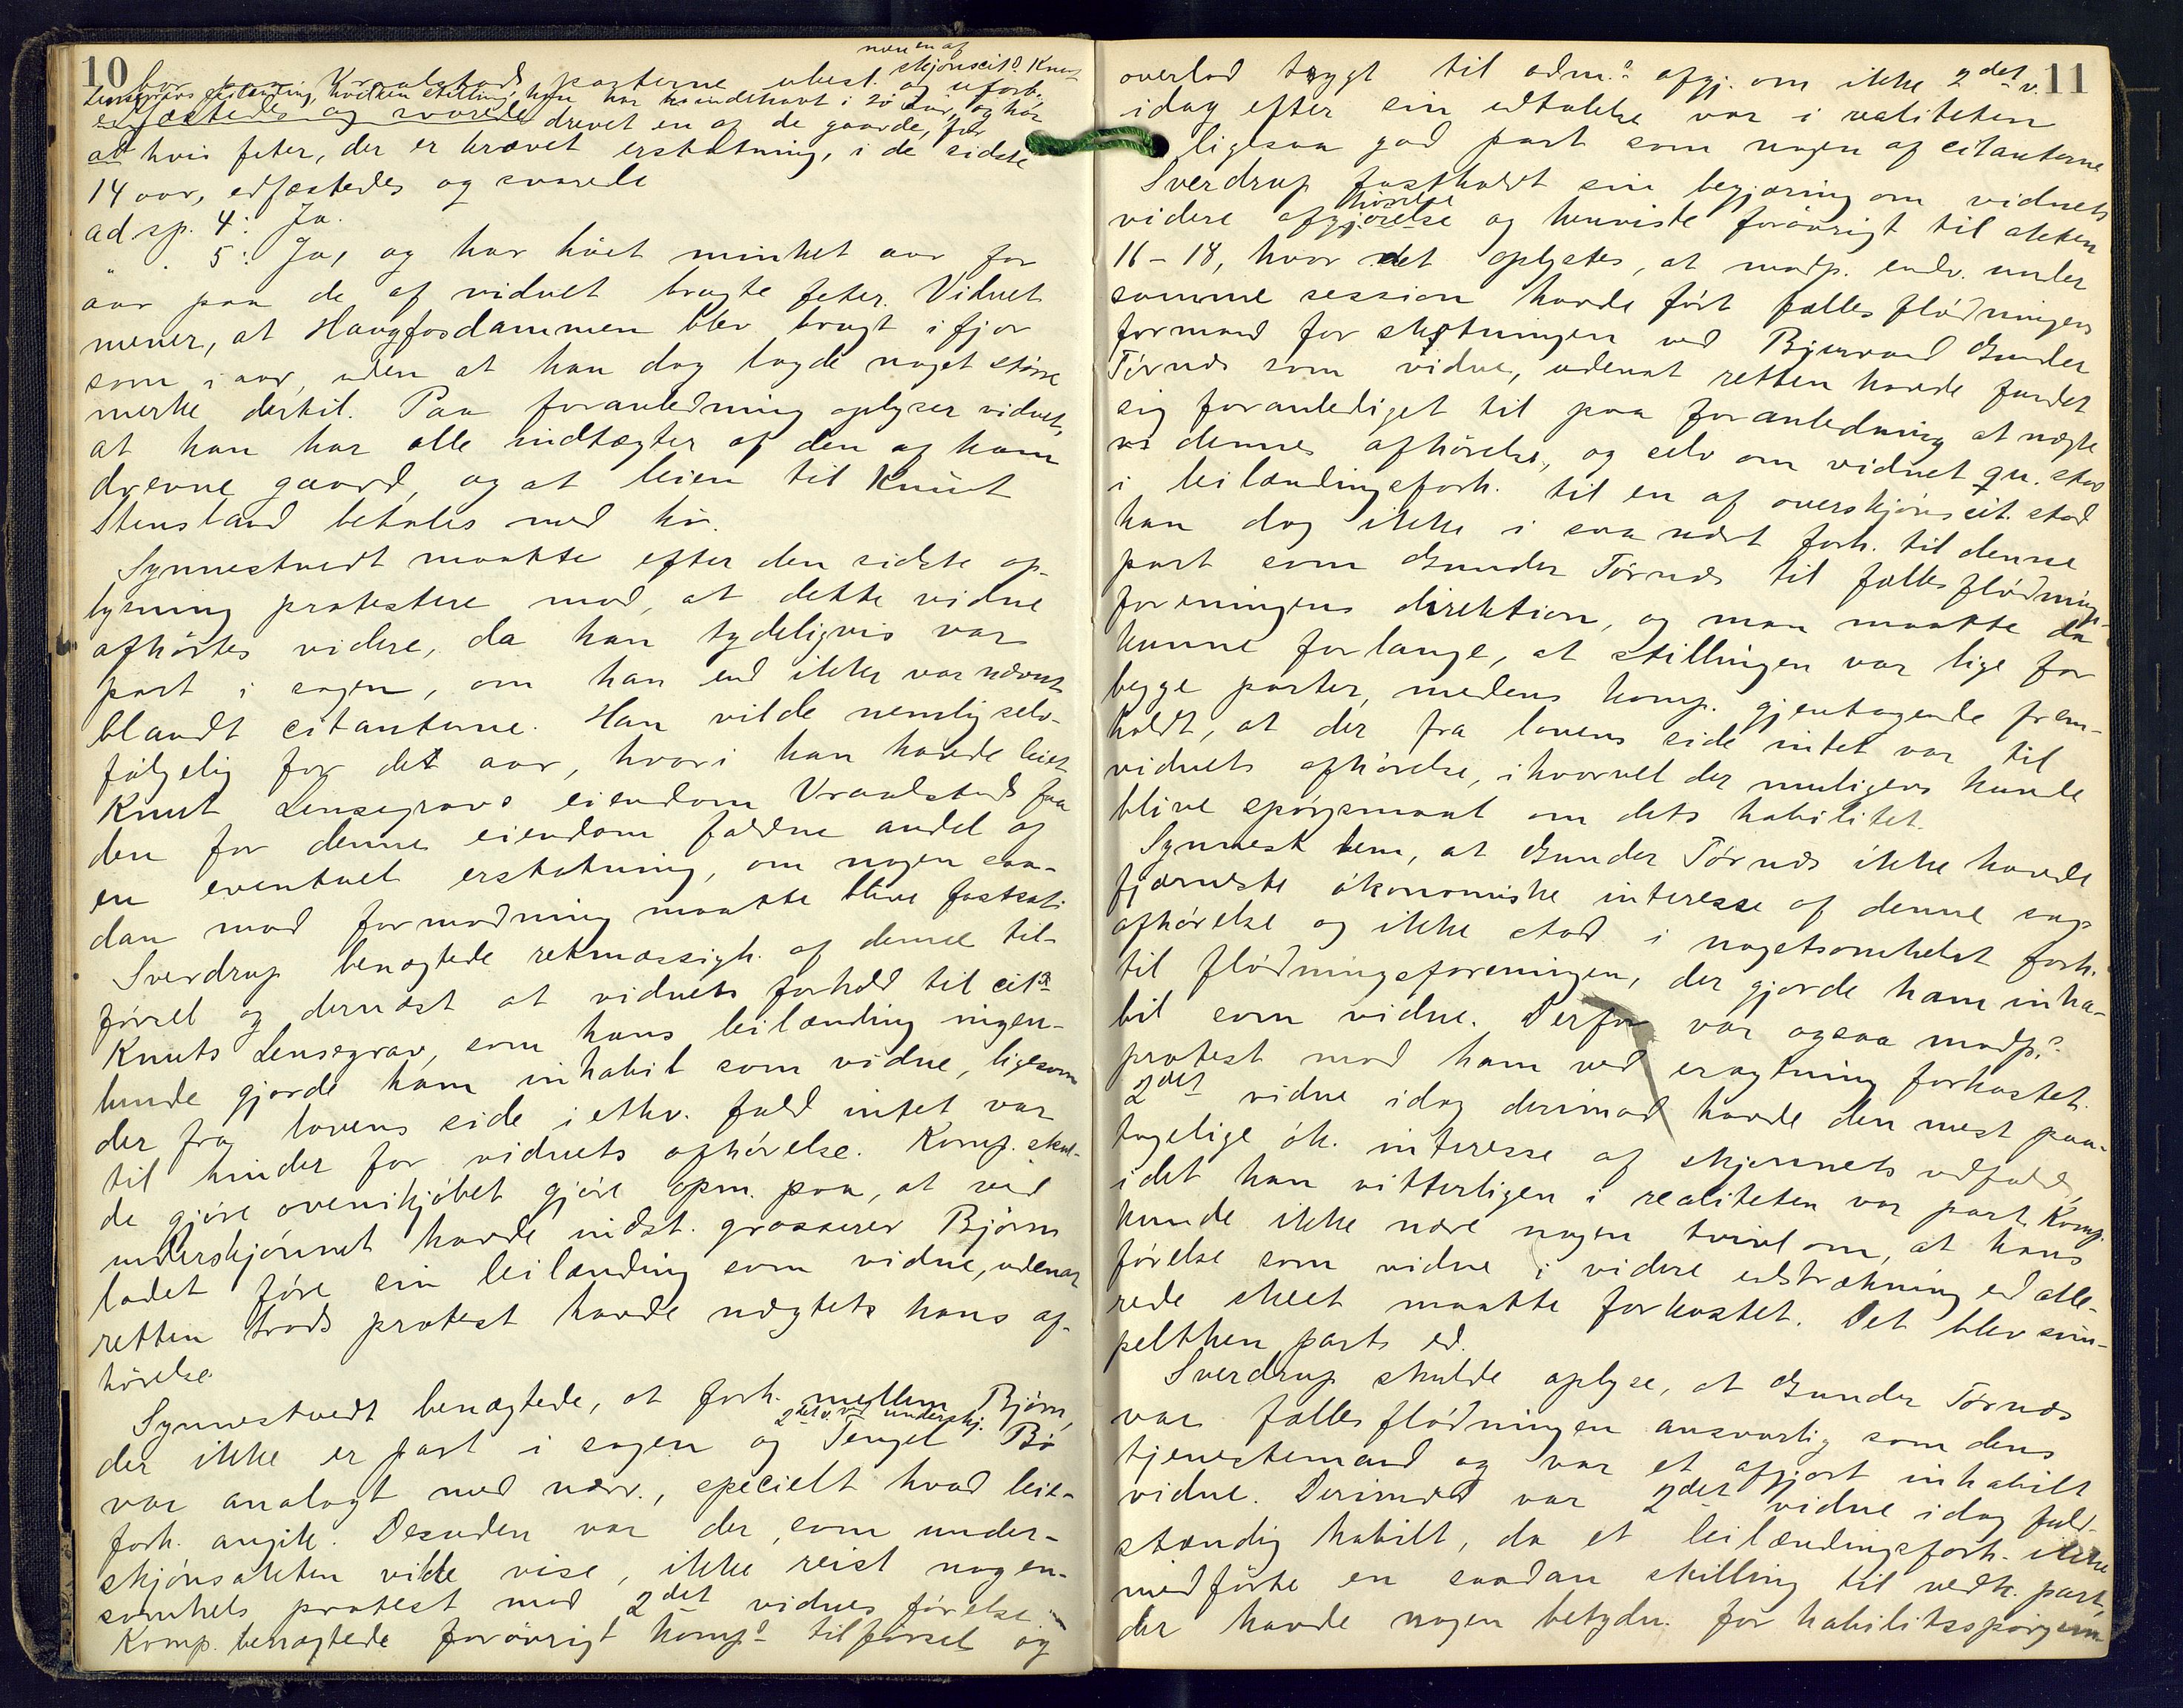 10
nu en af
bor paa Kraalstad, parterne ubesl. og uforb. skjönscit.s Knut
Lensegravs leilænding, hvilken stilling han har indehavt i 20 aar, og har
edfæstedes og svarede drevet en af de gaarde, for
at hvis feter, der er krævet erstatning, i de sidste
14 aar, edfæstedes og svarede
ad sp. 4: Ja.
" . 5: Ja, og har höet minket aar for
aar paa de af vidnet brugte feter. Vidnet
mener, at Haugfosdammen blev brugt i fjor
som i aar, uden at han dog lagde noget större
merke dertil. Paa foranledning oplyser vidnet,
at han har alle indtægter af den af ham
drevne gaard, og at leien til Knut
Stensland betales med hö.
Synnestvedt maatte efter den sidste op-
lysning protestere mod, at dette vidne
afhörtes videre, da han tydeligvis var
part i sagen, om han end ikke var nævnt
blandt citanterne. Han vilde nemlig selv-
fölgelig for det aar, hvori han havde leiet
Knut Lensegravs eiendom Vraalstad faa
den for denne eiendom faldne andel af
en eventuel erstatning, om nogen saa-
dan mod formodning maatte blive fastsat.
Sverdrup benægtede retmæssigh. af denne til-
försel og dernæst at vidnets forhold til cit.s
Knuts Lensegrav, som hans leilænding ingen-
lunde gjorde ham inhabil som vidne, ligesom
der fra lovens side i ethv. fald intet var
til hinder for vidnets afhörelse. Komp. skul-
de gjöre ovenikjöbet gjöre opm. paa, at ved
underskjönnet havde indst. grosserer Björn
ladet före sin leilænding som vidne, udenat
retten trods protest havde nægtets hans af-
hörelse.
Synnestvedt benægtede, at forh. mellem Björn,
der ikke er part i sagen og 2det v. ved underskj. Tengel Bö
var analogt med nærv., specielt hvad leie-
forh. angik. Desuden var der, som under-
skjönsakten vilde vise, ikke reist nogen-
somhels protest mod 2det vidnes förelse.
Komp. benægtede forövrigt komp.s tilförsel og
11
overlod trygt til adm.s afgj. om ikke 2det v.
idag efter sin udtalelse var i realiteten
ligesaa god part som nogen af citanterne
Sverdrup fastholdt sin begjæring om vidnets
hörelse
videre afgjörelse og henviste forövrigt til akten
16-18, hvor det oplystes, at modp. endv. under
samme session havde fört fællesflödningens
formand for slutningen ved Bjurvand Gunder
Törnæs som vidne, udenat retten havde fundet
sig foranlediget til paa foranledning at nægte
denne afhörelse, og selv om vidnet qu. stod
i leilændingsforh. til en af overskjönscit. stod
han dog ikke i saa nært forh. til denne
part som Gunder Törnæs til fællesflödnings-
foreningens direktion, og man maatte da
kunne forlange, at stillingen var lige for
begge parter, medens komp. gjentagende frem-
holdt, at der fra lovens side intet var til
vidnets afhörelse, ihvorvel der muligens kunde
blive spörgsmaal om dets habilitet.
Synnest. bem., at Gunder Törnæs ikke havde
fjerneste ökonomiske interesse af denne sags
afhörelse og ikke stod i nogetsomhelst forh.
til flödningsforeningen, der gjorde ham inha-
bil som vidne. Derfor var ogsaa modp.s
protest mod ham ved eragtning forkastet.
2det vidne idag derimod havde den mest paa-
tagelige ök. interesse af skjönnets udfald,
idet han vitterligen i realiteten var part. Komp.
kunde ikke nære nogen tvivl om, at hans
förelse som vidne i videre udstrækning end alle-
rede skeet maatte forkastet. Det blev sim-
pelthen parts ed.
Sverdrup skulde oplyse, at Gunder Törnæs
var fællesflödningen ansvarlig som dens
tjenestemand og var et afgjort inhabilt
vidne. Derimod var 2det vidne idag fuld-
stændig habilt, da et leilændingsforh. ikke
medförte en saadan stilling til vedk. part,
der havde nogen betydn. for habilitsspörgsm.